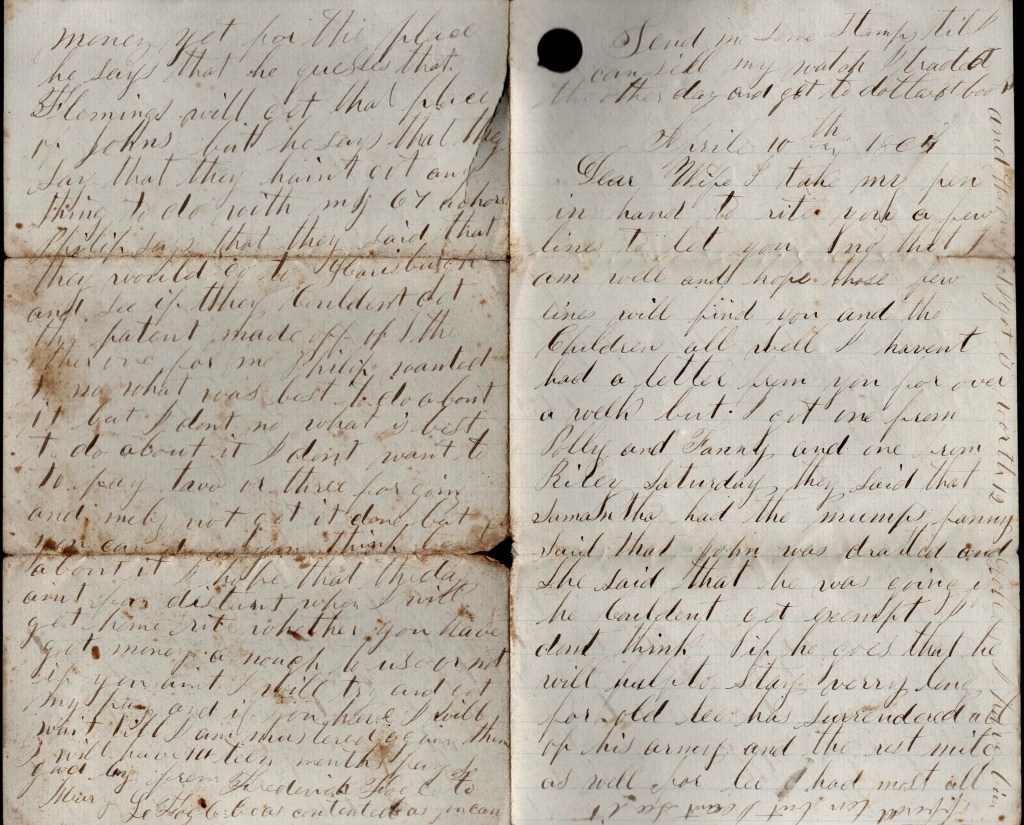 Send me some Stamps till I
can sell my watch I traded
the other day and got to dollars to boot
April 10th day 186
Dear Wife I take my pen
in hand to rite you a few
lines to let you no that I
am well and hope those few
lines will find you and the
Children all well I havent
had a letter from you for over
a week but I got one from
Polly and Fanny and one from
Riley Saturday they said that
Samantha had the mumps fanny
said that John was drafted and
she said that he was going if
he Couldent get exempt I
dont think if he goes that he
will haf to stay verry long
for old lee has surrendered all
of his army and the rest mite
as well for lee had most all
money yet for the place
he says that he guesses that
Flemings will get that place
of Johns but he says that they
say that they haint got any
thing to do with my 67 achors
Philip says that they said that
they would go to Harisburgh
and see if they Couldent get
the patent made off of the
other one for me Philip wanted
to no what was best to do about
it but I dont no what is best
to do about it I dont want to
to pay two or three for goin
and meby not get it done but
you can do as you think best
about it I hope that the day
aint far distant when I will
get home rite whether you have
got money a nough to us or not
if you aint I will try and get
my pay and if you have I will
wait till I am mustered again then
I will have months pay
good by from Frederick to
be as contented as you can